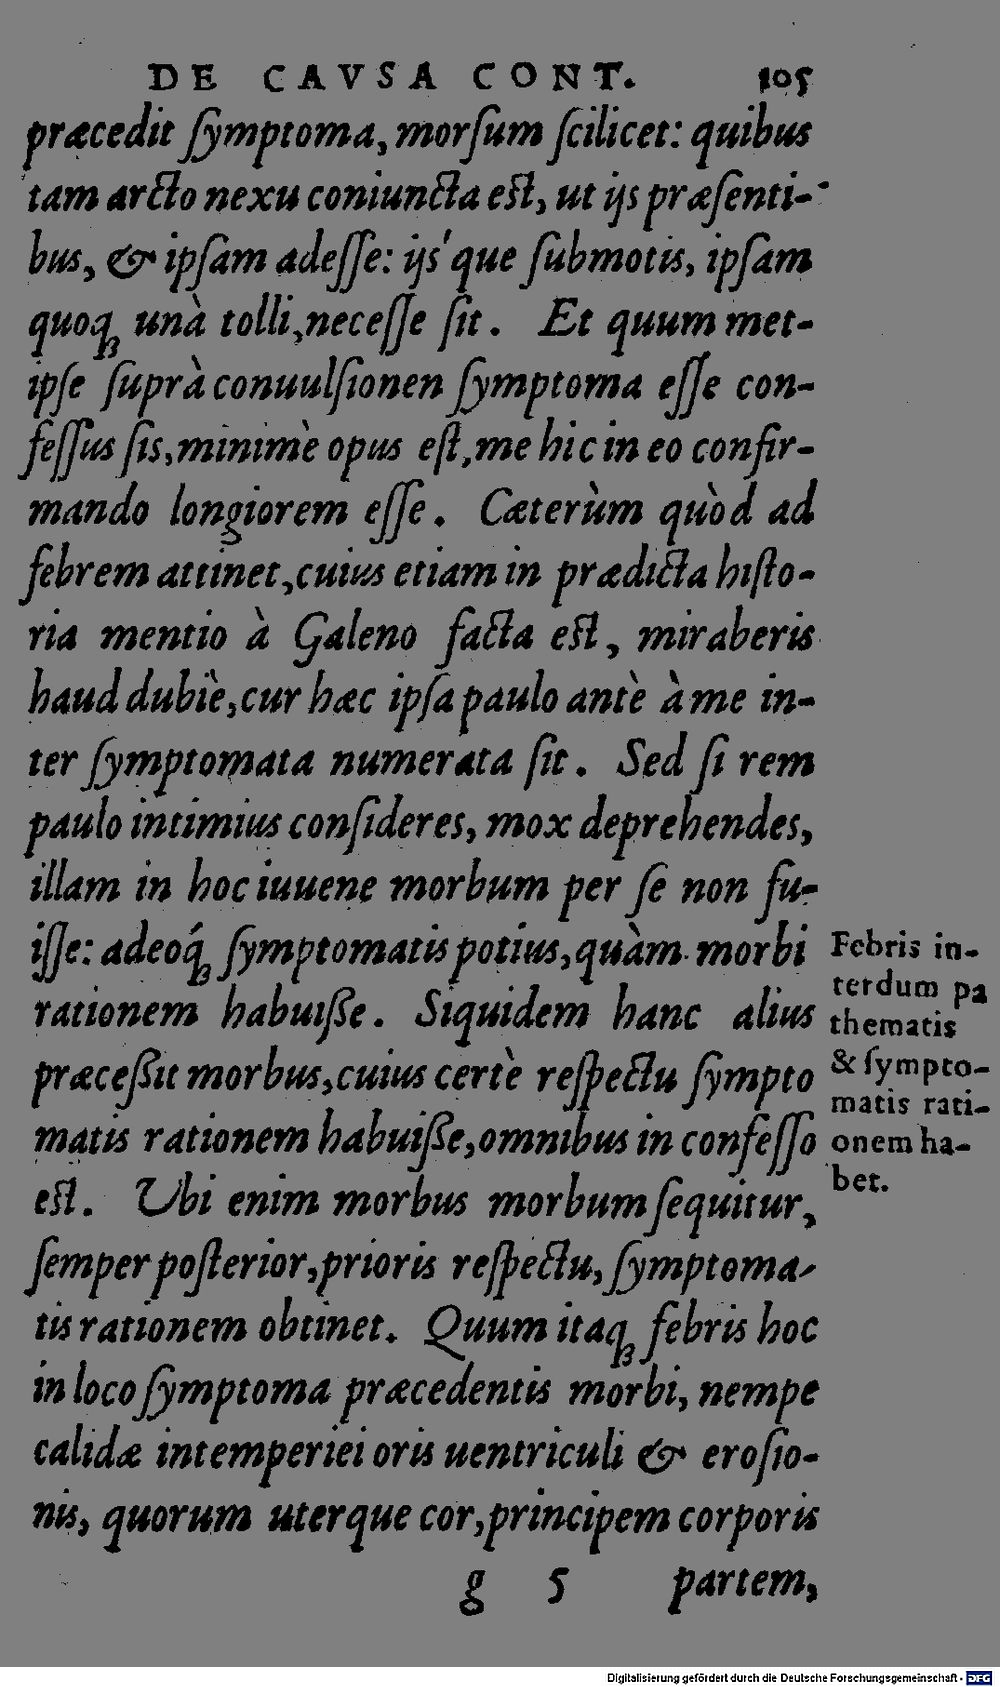 DE CAVSA CONT. 105
præcedit ſymptoma, morſum ſcilicet: quibus
tam arcto nexu coniuncta eſt, ut ijs præſenti-
bus, & ipſam adeſſe: ijs'que ſubmotis, ipſam
quoqꝫ unà tolli, neceſſe ſit. Et quum met-
ipſe ſuprà conuulſionen ſymptoma eſſe con-
feſſus ſis, minimè opus eſt, me hic in eo confir-
mando longiorem eſſe. Cæterùm quòd ad
febrem attinet, cuius etiam in prædicta hiſto-
ria mentio à Galeno facta eſt, miraberis
haud dubiè, cur hæc ipſa paulo antè à me in-
ter ſymptomata numerata ſit. Sed ſi rem
paulo intimius conſideres, mox deprehendes,
illam in hoc iuuene morbum per ſe non fu-
iſſe: adeoq́ꝫ ſymptomatis potius, quàm morbi
rationem habuiſſe. Siquidem hanc alius
præceßit morbus, cuius certè reſpectu ſympto
matis rationem habuiße, omnibus in confeſſo
eſt. Ubi enim morbus morbum ſequitur,
ſemper poſterior, prioris reſpectu, ſymptoma-
tis rationem obtinet. Quum itaqꝫ febris hoc
in loco ſymptoma præcedentis morbi, nempe
calidæ intemperiei oris uentriculi & eroſio-
nis, quorum uterque cor, principem corporis
g 5 partem,
Febris in-
terdum pa
thematis
& ſympto-
matis rati-
onem ha-
bet.
Digitalisierung gefördert durch die Deutsche Forschungsgemeinschaft - DFG